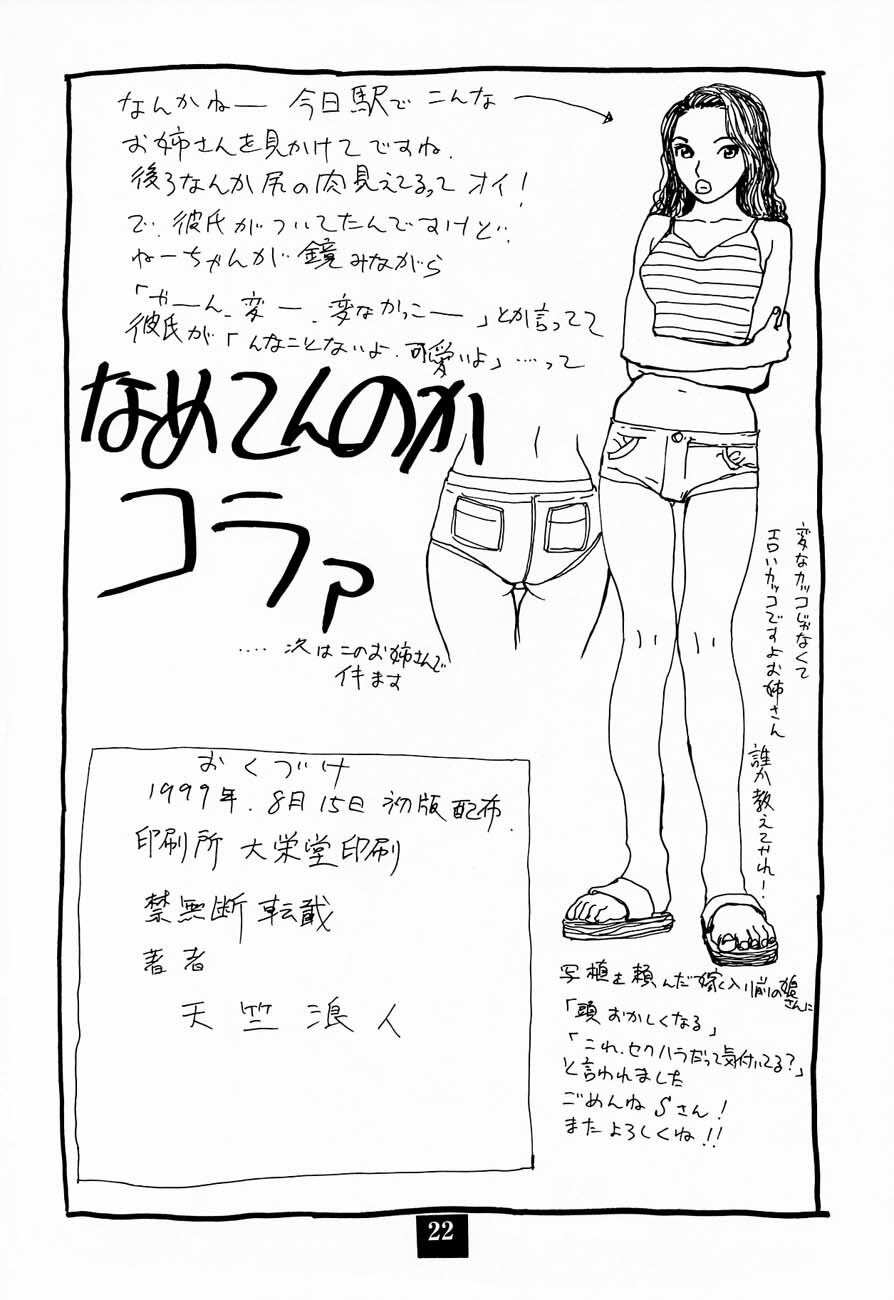 なんかねー 今日駅で こんな
お姉さんを見かけてですね、
後ろなんか尻の肉見えてるって オイ!
で、彼氏がついてたんですけど、
ねーちゃんが鏡みながら
「やーん、変ー、変なかっこー」とか言ってて
彼氏が「んなことないよ、可愛いよ」…って
なめてんのか
コラァ
....次はこのお姉さんで
イキます
変なカッコじゃなくて
エロいカッコですよお姉さん
誰か教えてやれ!
おくづけ
1999年.8月15日 初版配布.
印刷所 大栄堂印刷
禁無断転載
著者
天竺浪人
写植を頼んだ嫁入り前の娘さんに
「頭おかしくなる」
「これ、セクハラだって気付いてる?」
と言われました
ごめんね Sさん!
またよろしくね!!
22